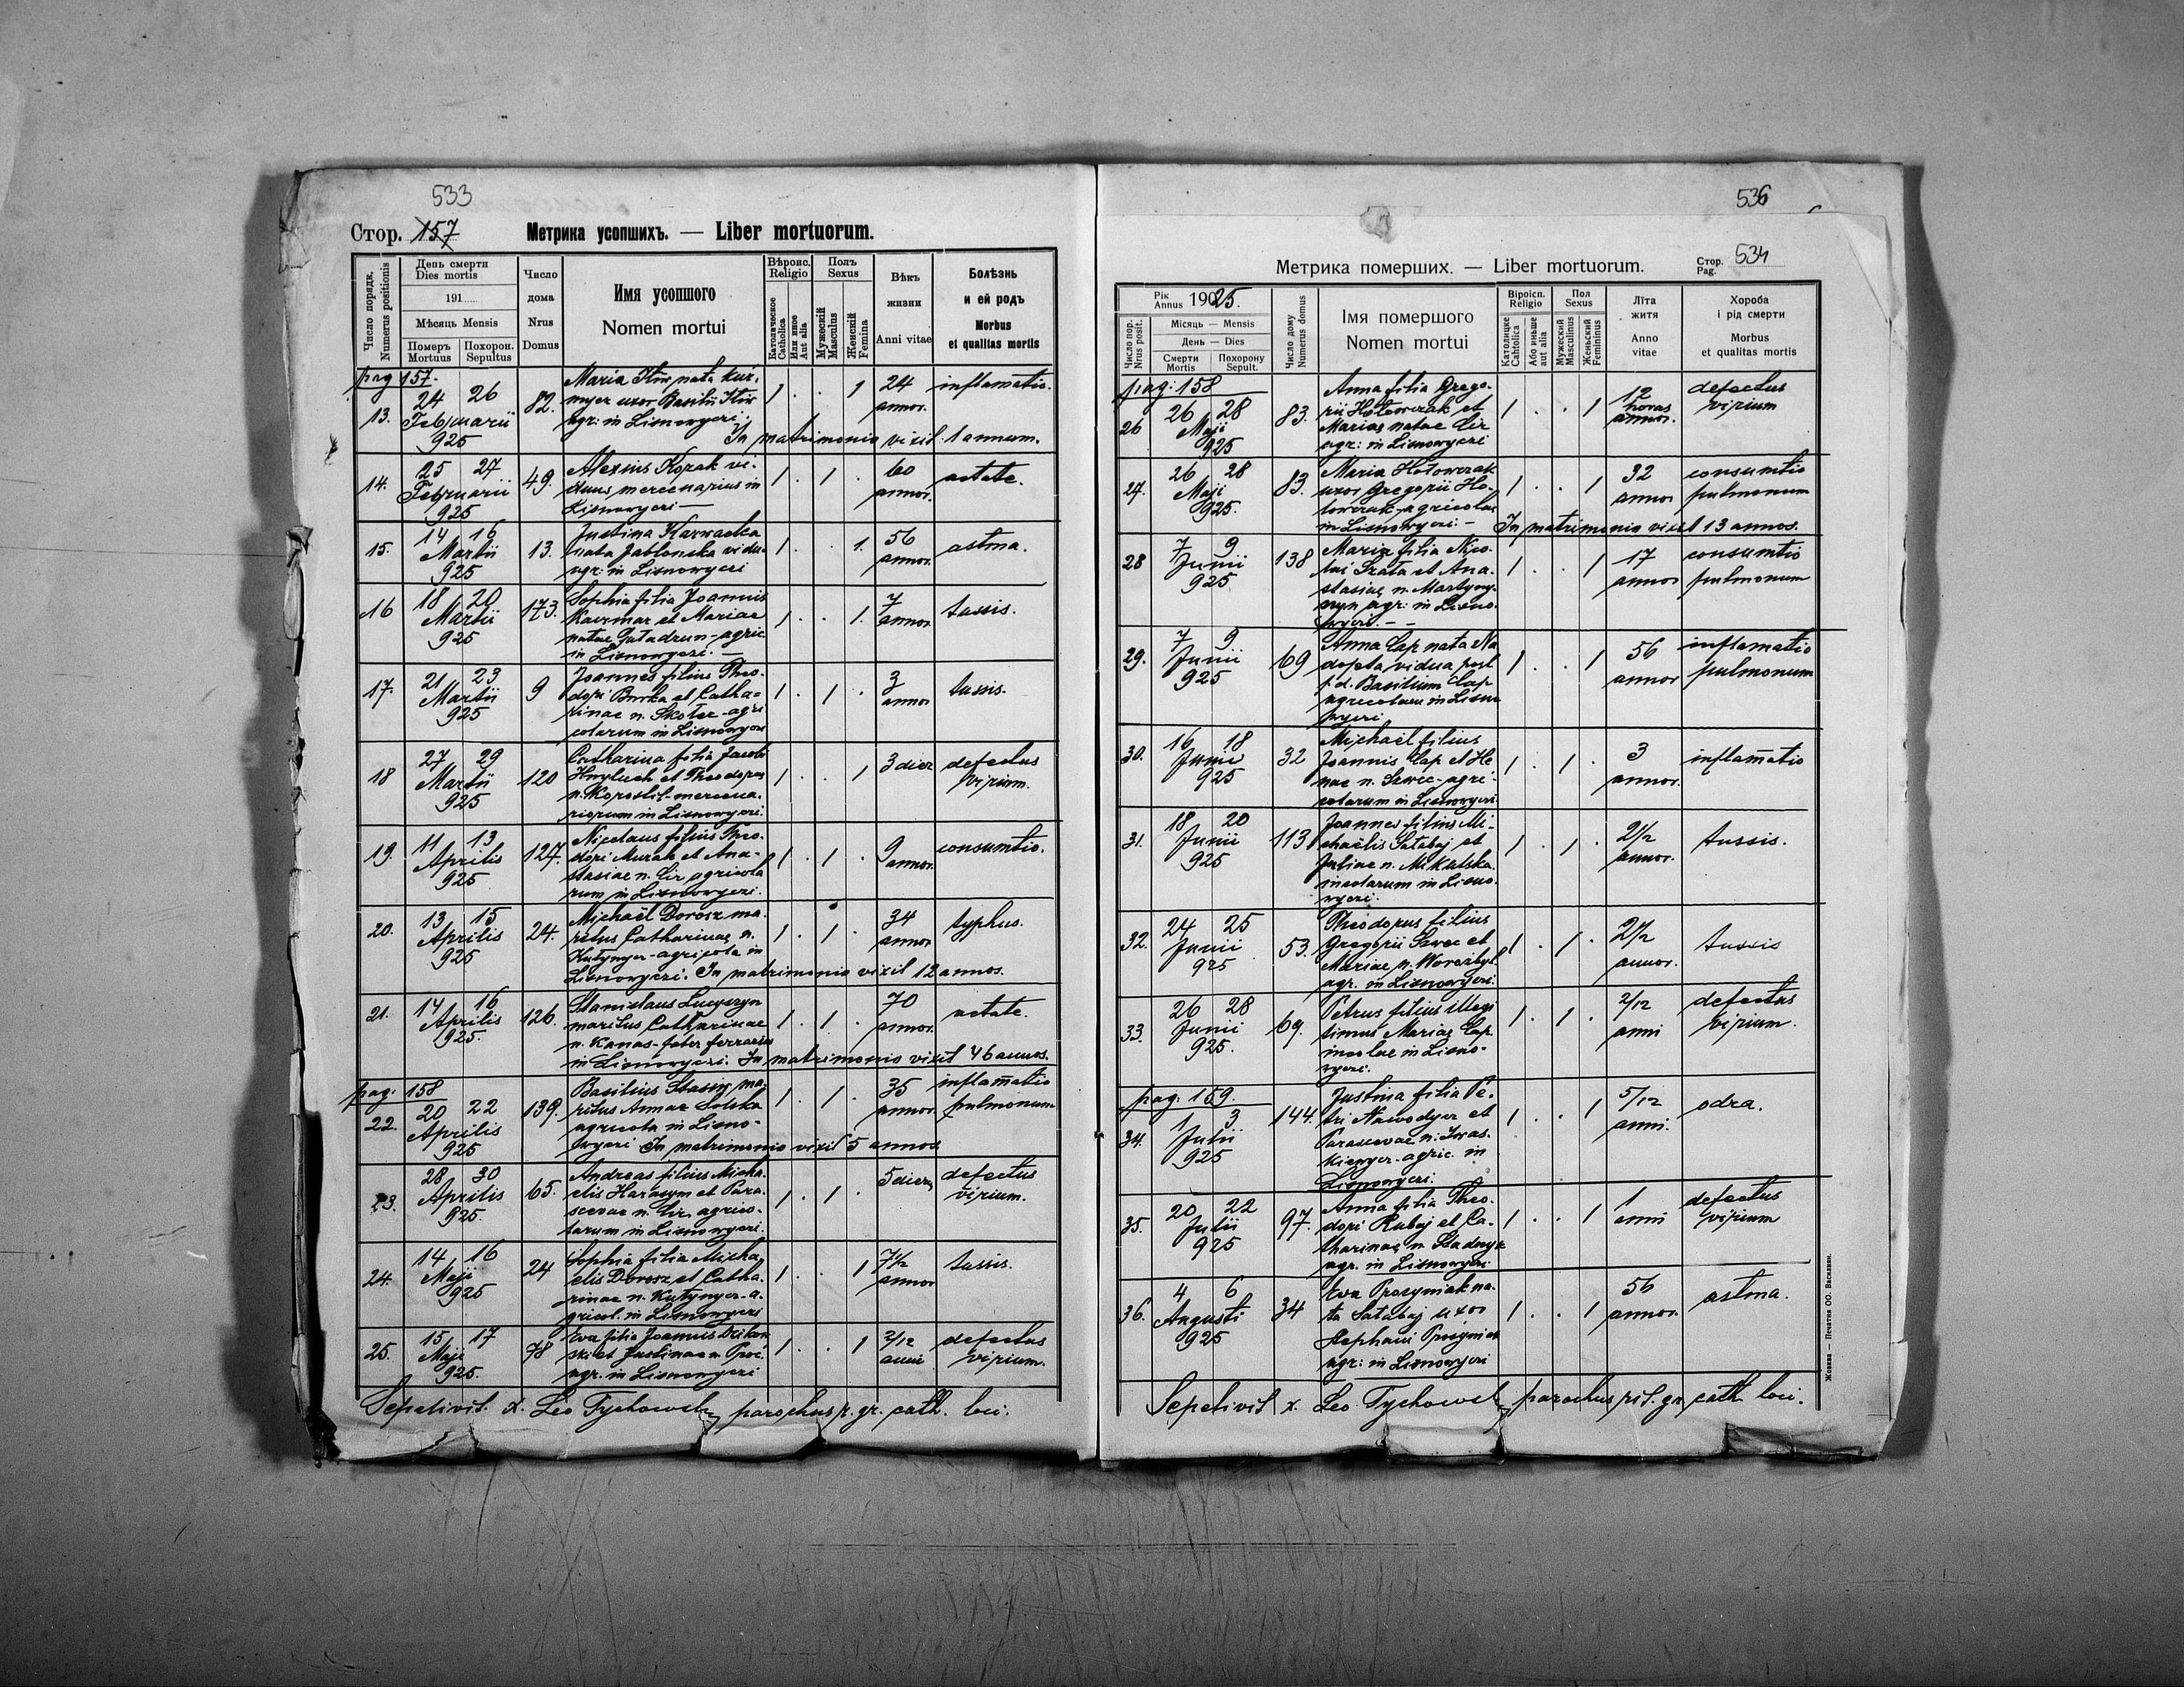 533
Стор. 157
Метрика усопшихъ. — Liber mortuorum.
Число порядк.
Numerus positionis
День смерти
Dies mortis
191
Мѣсяць Mensis
Померъ
Mortuus
Похорон.
Sepultus
Число
дома
Nrus
Domus
Имя усопшого
Nomen mortui
Вѣроис.
Religio
Католическое
Catholica
Или иное
Aut alia
Полъ
Sexus
Мужескій
Masculus
Женскій
Femina
Вѣкъ
жизни
Anni vitae
Болѣзнь
и ей родъ
Morbus
et qualitas mortis
pag 157.
13. 24 26 Februarii 925 82.
Maria
nata
uxor Basilii
agr: in Lisnowyczi.
1 . . 1 24 annor. inflamatio.
In matrimonio vixit 1 annum.
14. 25 27 Februarii 925 49.
Alexius Kozak vi-
duus mercenarius in
Lisnowyczi —
1 . 1 . 60 annor. aetate.
15. 14 16 Martii 925 13.
Justina
nata Jablonska vidua
agr: in Lisnowyczi
1 . . 1. 56 annor. astma.
16 18 20 Martii 925 173.
Sophia filia Joannis
Kaczmar et Mariae
natae
agric
in Lisnowyczi. —
1 . . 1. 7 annor. tussis.
17. 21 23 Martii 925 9
Joannes filius Theo-
dori Burka et Catha=
rinae n. Skoter - agri
colarum in Lisnowyczi
1 . 1 . 3 annor tussis.
18 27 29 Martii 925 120
Catharina filia Jacobi
et Theodorae
n. Korostil - mercena-
riorum in Lisnowyczi.
1 . . 1 3 dier defectus
virium.
19. 11 13 Aprilis 925 127.
Nicolaus filius Theo-
dori Murak et Ana-
stasiae n. Cir agricola
rum in Lisnowyczi.
1 . 1 . 9 annor. consumtio.
20. 13 15 Aprilis 925 24.
Michaël Dorosz ma-
ritus Catharinae n.
Kutynyer - agricola in
Lisnowyczi. In matrimonio vixit 12 annos.
1 . 1 . 34 annor typhus.
21. 14 16 Aprilis 925. 126.
Stanislaus
maritus Catharinae
n. Kanas - faber ferrarius
in Lisnowyczi. In matrimonio vixit 46 annos.
1 . 1 . 70 annor. aetate.
pag: 158
22. 20 22 Aprilis 925 139.
Basilius Stasiw ma-
ritus Annae Solska
agricola in Lisno-
wyczi In matrimonio vixit 5 annos
1 . 1 . 35 annor inflamatio
pulmonum
23. 28 30 Aprilis 925. 65.
Andreas filius Micha-
elis Harasym et Para-
scevae n. Cir, agrico-
larum in Lisnowyczi.
1 . 1 . 5 dierum defectus
virium.
24. 14 16 Maji 925 24
Sophia filia Micha-
elis Dorosz et Catha-
rinae n. Kutynyer - a-
gricol. in Lisnowyczi
1 . . 1 7½ annor tussis.
25. 15 17 Maji 925. 78
Eva filia Joannis
et Justinae n.
agr. in Lisnowyczi
1 . . 1 2/12 anni defectus
virium.
Sepelivit x. Leo Tychowski, parochus r. gr. cath. loci.
536
Метрика померших. — Liber mortuorum.
Стор.
Pag. 534
Число пор.
Nrus posit.
Рік
Annus 1925.
Місяць — Mensis
День — Dies
Смерти
Mortis
Похорону
Sepult.
Число дому
Numerus domus
Імя помершого
Nomen mortui
Віроісп.
Religio
Католицке
Cahtolica
Або иньше
aut alia
Пол
Sexus
Мужеский
Masculinus
Женьский
Femininus
Літа
житя
Anno
vitae
Хороба
і рід смерти
Morbus
et qualitas mortis
pag: 158
26 26 28 Maji 925 83.
Anna filia Grego-
rii Hotowczak et
Mariae natae Cir
agr: in Lisnowyczi
1 . . 1 12 horas annor. defectus
virium
27. 26 28 Maji 925. 83.
Maria Hotowczak
uxor Gregorii Ho-
towczak - agricolae
in Lisnowyczi - In matrimonio vixit 13 annos.
1 . . 1 32 annor consumtio
pulmonum
28 7 9 Junii 925 138
Maria filia Nico-
lai Szata et Ana-
stasiae n. Martyny-
szyn agr: in Lisno-
wyczi. - -
1 . . 1 17 annor consumtio
pulmonum
29. 7 9 Junii 925 69
Anna Cap nata
vidua post
p. d. Basilium Cap
agricolam in Lisno
wyczi
1 . . 1 56 annor inflamatio
pulmonum
30. 16 18 Junii 925 32
Michaël filius
Joannis Cap et He
nae n. Szwec - agri-
colarum in Lisnowyczi
1 . 1 . 3 annor. inflamatio
31. 18 20 Junii 925 113
Joannes filius Mi-
chaëlis Satabaj et
Juliae n. Mikulska
incolarum in Lisno-
wyczi.
1 . 1 . 2½ annor. tussis.
32. 24 25 Junii 925 53.
Theodorus filius
Gregorii Szwec et
Mariae n. Worozbyt
agr. in Lisnowyczi.
1 . 1 . 2½ annor. tussis
33. 26 28 Junii 925. 69.
Petrus filius illegi
timus Mariae Cap
incolae in Lisno-
wyczi.
1 . 1 . 2/12 anni defectus
virium.
pag: 159.
34. 1 3 Julii 925 144.
Justina filia Pe-
tri Nawodyer et
Parascevae n. Iwas-
agric. in
Lisnowyczi.
1 . . 1 5/12 anni. odra.
35. 20 22 Julii 925 97.
Anna filia Theo-
dori Rubaj et Ca-
tharinae n Stadnyk
agr. in Lisnowyczi
1 . . 1 1 anni defectus
virium
36. 4 6 Augusti 925 34
Eva Prosyniak na-
ta Satabaj uxor
Stephani Prosyniak
agr: in Lisnowyczi
1 . . 1 56 annor. astma.
Sepelivit x. Leo Tychowski, parochus rit. gr. cath. loci.
Жовква — Печатня ОО. Василиян.